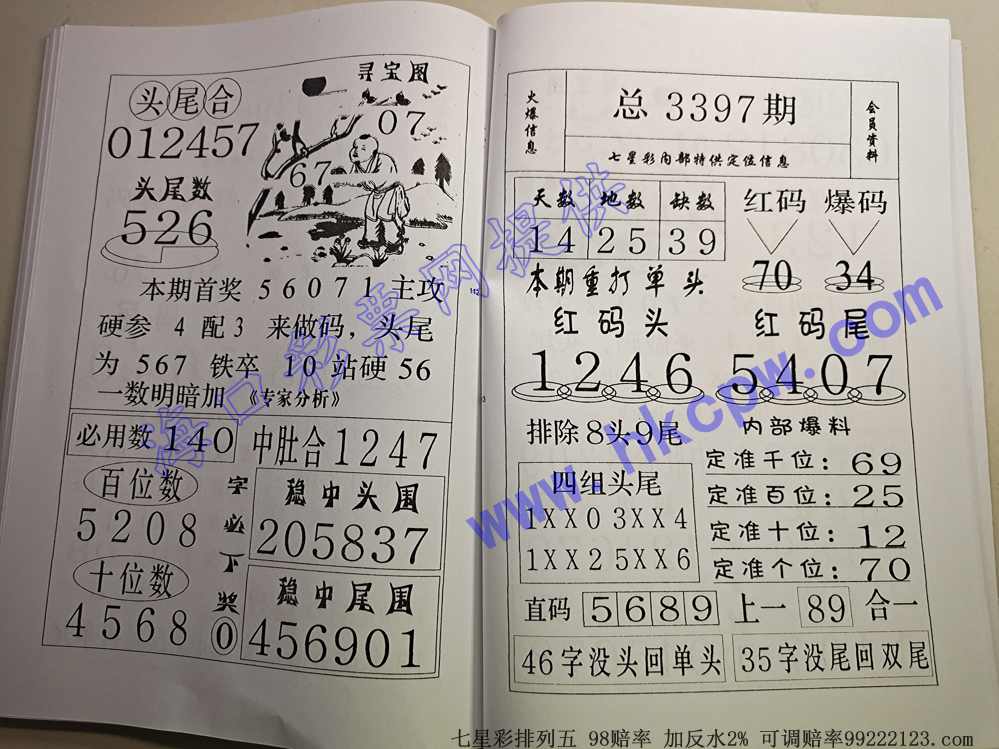 头尾合
012457
头尾数
526
寻宝图
07
67
本期首奖 56071 主攻
硬参 4 配3 来做码，头尾
为 567 铁卒 10 站硬 56
一数明暗加 《专家分析》
必用数 140
中肚合 1247
百位数
5208
十位数
4568
字必下奖
0
稳中头围
205837
稳中尾围
456901
火爆信息
总 3397 期
七星彩内部特供定位信息
会员资料
天数 地数 缺数
14 25 39
红码 爆码
70 34
本期重打单头
红码头 红码尾
1246 5407
排除 8头9尾
四组头尾
1XX0 3XX4
1XX2 5XX6
内部爆料
定准千位：69
定准百位：25
定准十位：12
定准个位：70
直码 5689 上一 89 合一
46字没头回单头 35字没尾回双尾
海口彩票网提供
www.hkcpw.com
七星彩排列五 98赔率 加反水2% 可调赔率99222123.com